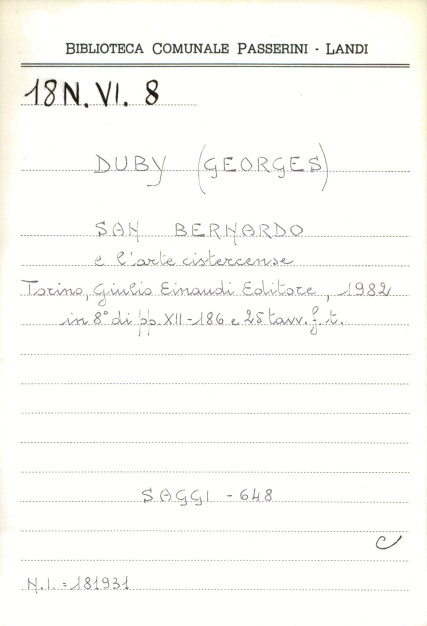 BIBLIOTECA COMUNALE PASSERINI - LANDI
18 N. VI. 8
DUBY (GEORGES)
SAN BERNARDO
e l'arte cistercense
Torino, Giulio Einaudi Editore, 1982
in 8° di pp. XII - 186 e 25 tavv. f. t.
SAGGI - 648
C
N. I. = 181931